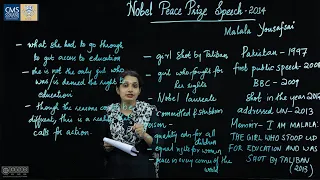 CMS
Nobel Peace Prize Speech - 2014
Malala Yousafzai
- what she had to go through
to get access to education
- she is not the only girl who
was/is denied the right
education
- though the reasons
different, this is a
calls for action.
- girl shot by Taliban
- girl who fought for
her rights
- Nobel laureate
- committed & stubborn
person
- quality edn for all
children
- equal rights for women
- peace in every corner of the world
Pakistan - 1997
first public speech - 2008
BBC - 2009
Shot in the year 2012
addressed UN - 2013
Memoir - I AM MALALA:
THE GIRL WHO STOOD UP
FOR EDUCATION AND WAS
SHOT BY TALIBAN
(2013)